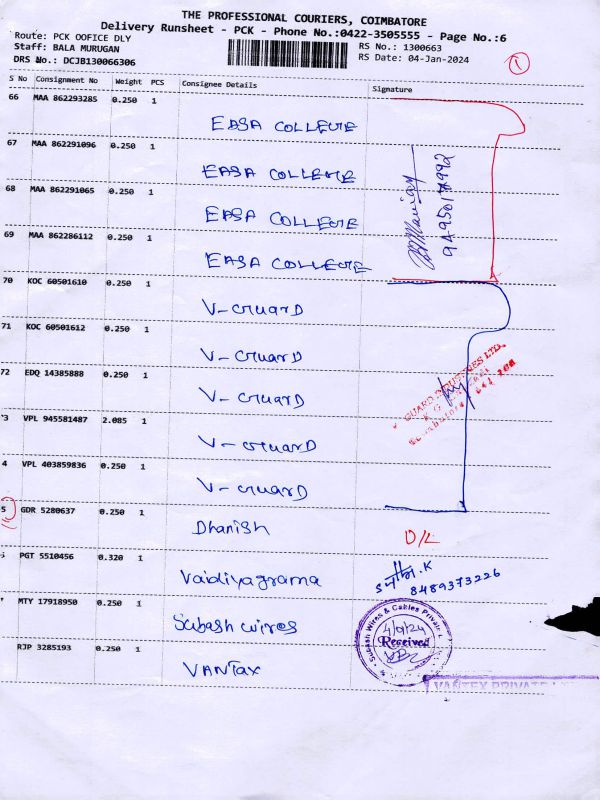 THE PROFESSIONAL COURIERS, COIMBATORE
Delivery Runsheet - PCK - Phone No.:0422-3505555 - Page No.:6
Route: PCK OOFICE DLY
RS No.: 1300663
Staff: BALA MURUGAN
RS Date: 04-Jan-2024
DRS No.: DCJB130066306
1
S No Consignment No Weight PCS Consignee Details Signature
66 MAA 862293285 0.250 1
EASA COLLEGE
67 MAA 862291096 0.250 1
EASA COLLEGE
68 MAA 862291065 0.250 1
EASA COLLEGE
69 MAA 862286112 0.250 1
EASA COLLEGE
70 KOC 60501610 0.250 1
V-GUARD
71 KOC 60501612 0.250 1
V-GUARD
72 EDQ 14385888 0.250 1
V-GUARD
GUARD INDUSTRIES LTD.
'3 VPL 945581487 2.085 1
V-GUARD
4 VPL 403859836 0.250 1
V-GUARD
5 GDR 5280637 0.250 1
Dhanish D/L
PGT 5510456 0.320 1
Vaidiyagrama
8489373226
MTY 17918950 0.250 1
Subash wires
Subash Wires & Cables Private L
Received
RJP 3285193 0.250 1
VANTAX
VANTEX PRIVATE